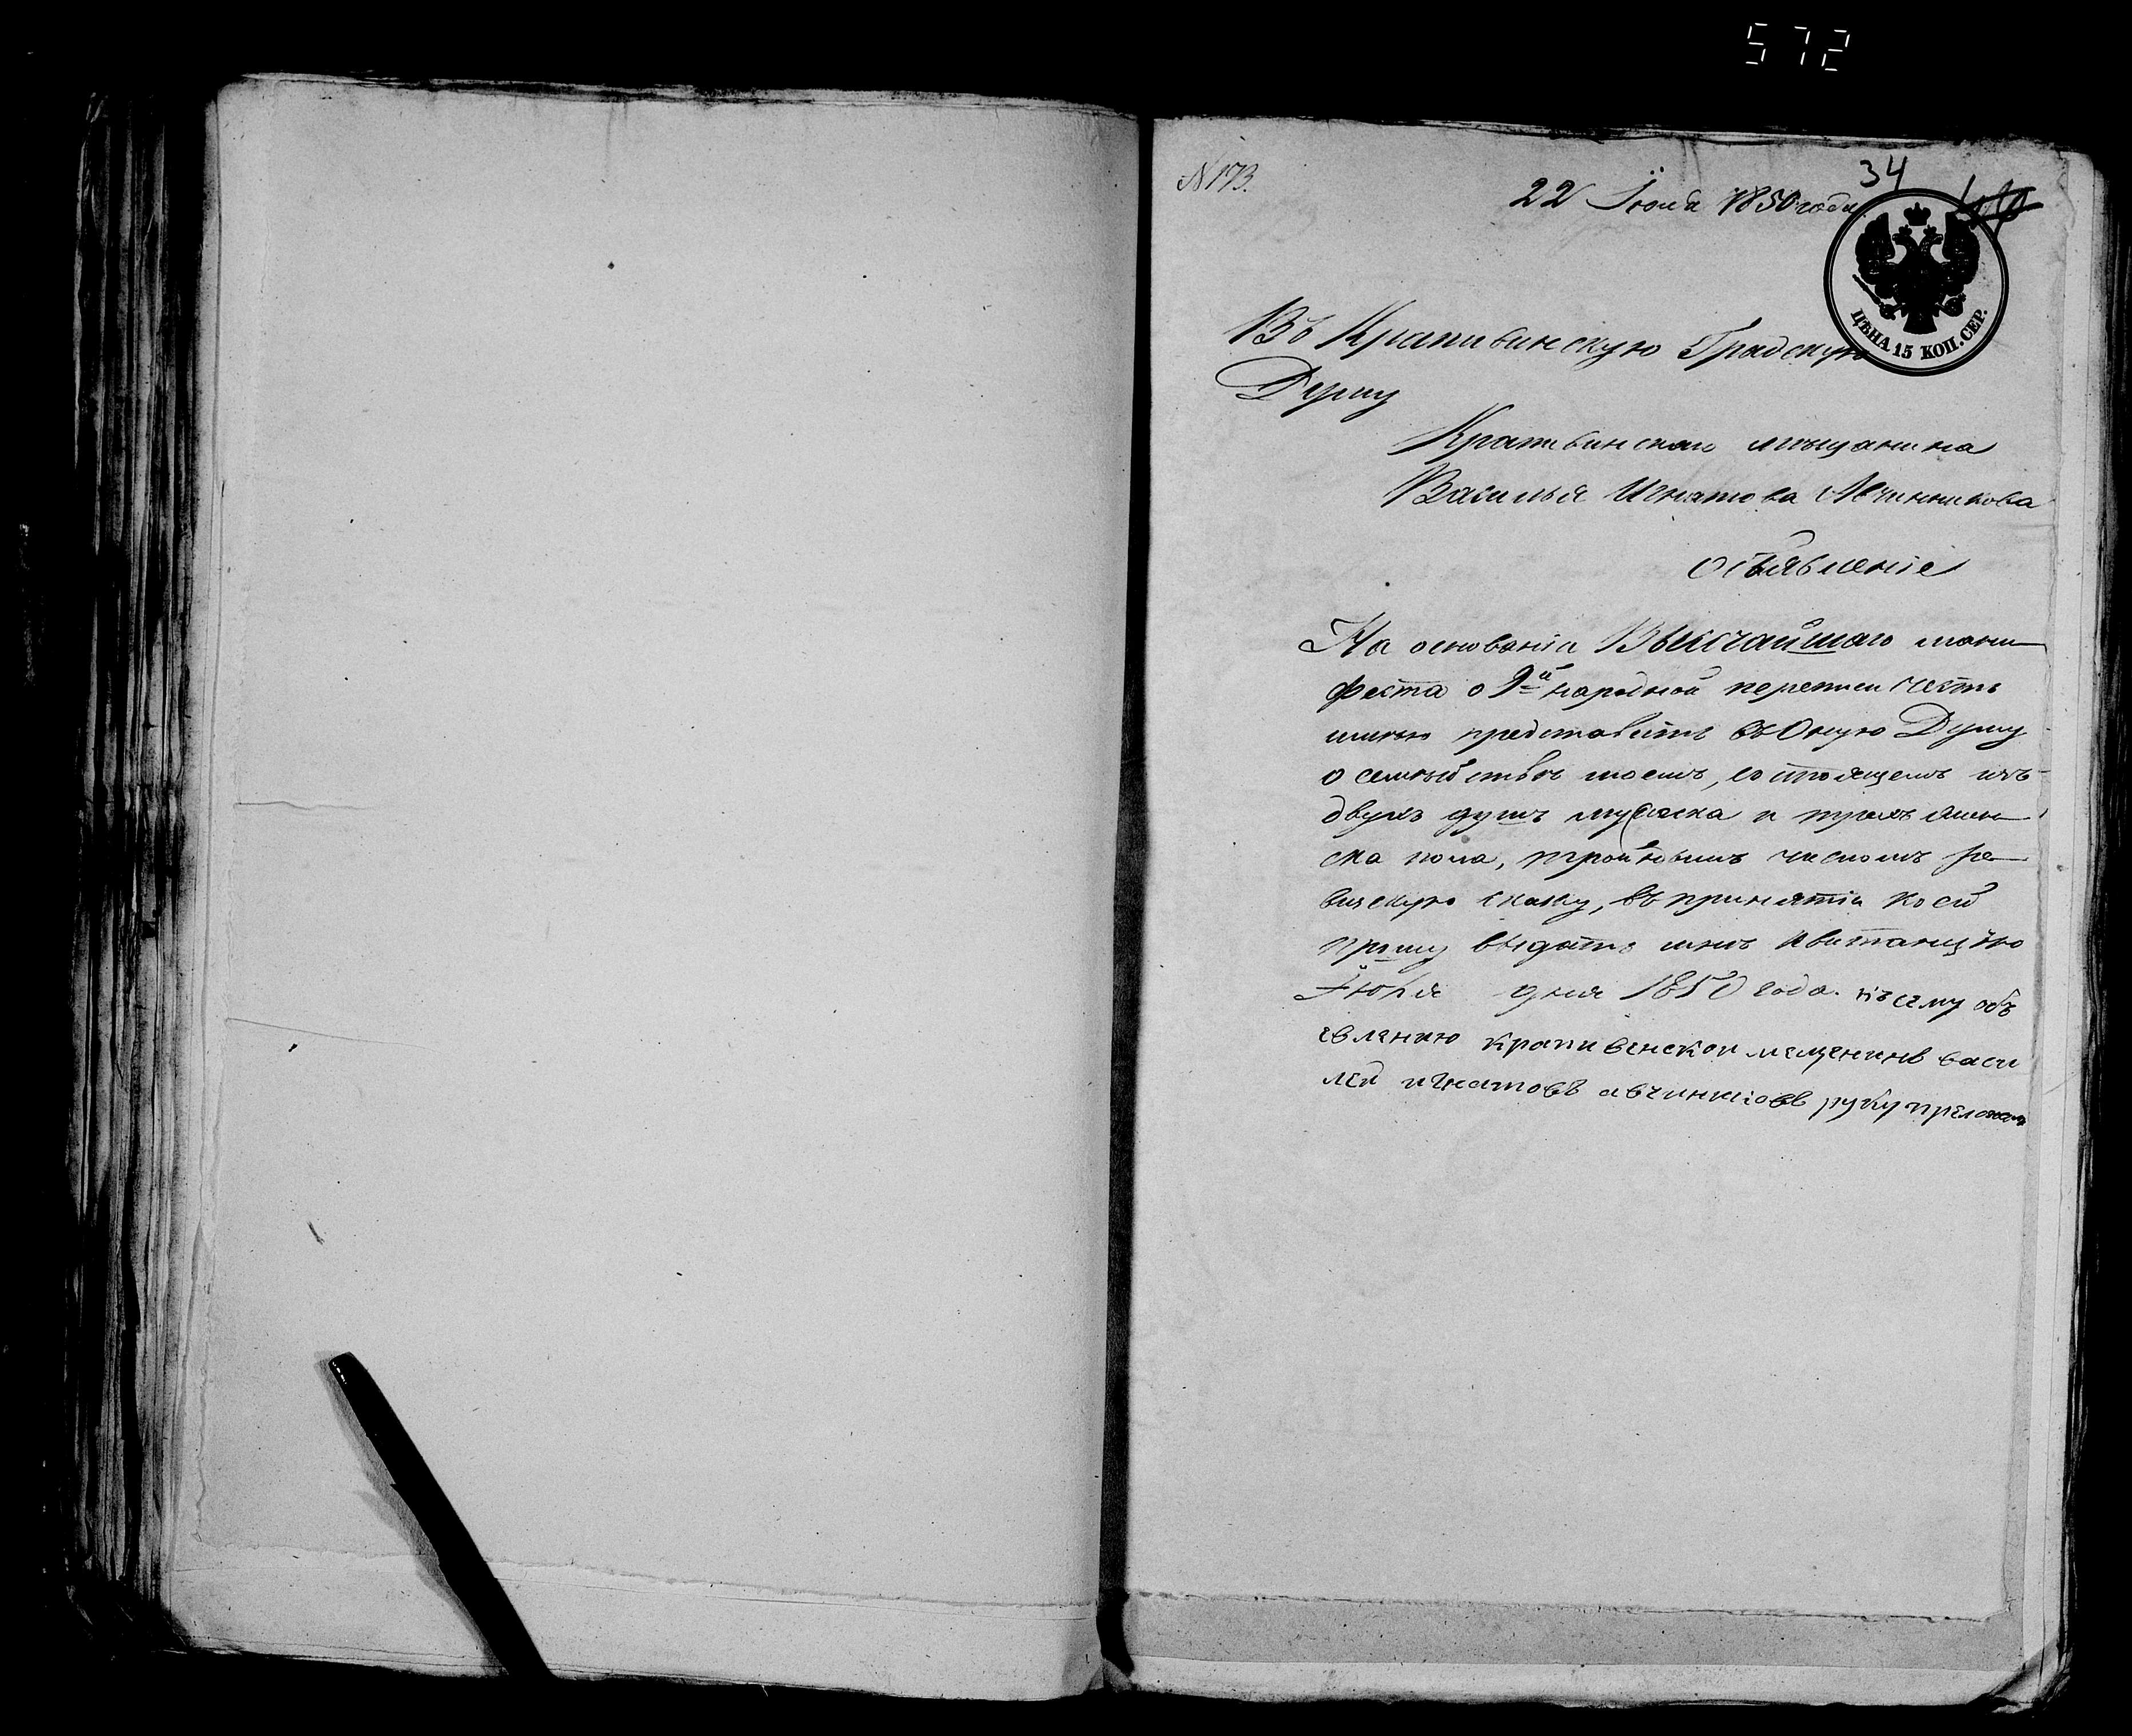 572
34
N 173.
22 Іюля 1850 года
ЦѢНА 15 КОП. СЕР.
Въ Крапивинскую Градскую
Думу
Крапивинскаго мѣщанина
Василья Игнатова Авчинникова
объявленіе
На основаніи Высочайшаго мани
феста о 9й народной переписи честь
имѣю представить въ Оную Думу
о семѣйствѣ моемъ, состоящемъ изъ
двухъ душъ мужеска и трехъ жен
ска пола, тройнымъ числомъ ре
визскую скаску, въ принятіи коей
прошу выдать мнѣ квитанцію
Іюля дня 1850 года. Къ сему объ
евлению крапивенской мещенинъ васи
лей игнатовъ авчинниковъ руку преложилъ